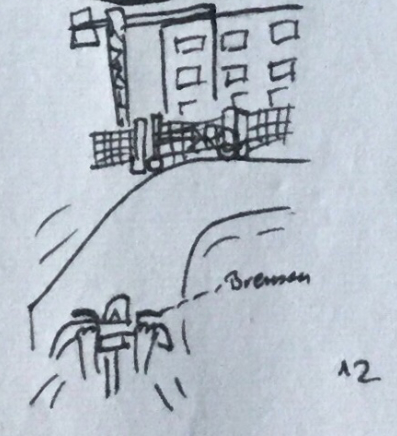 Bremsen
12